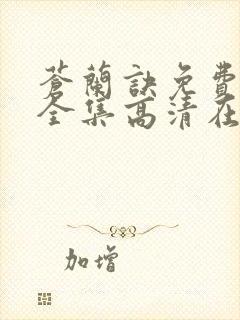 蒼蘭訣免費
全集高清在
加增